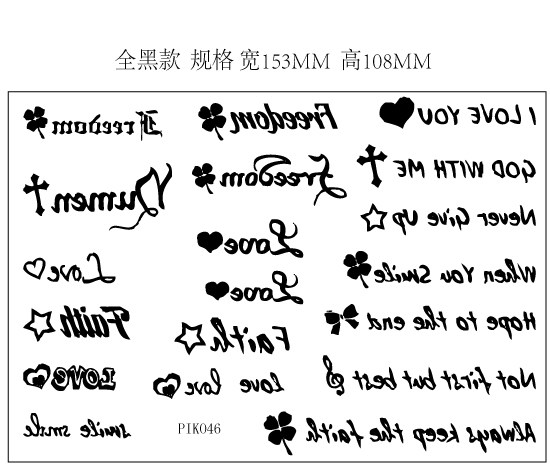 全黑款 规格 宽153MM 高108MM
Freedom
Numen
Love
Faith
LOVE
smile smile
Freedom
Freedom
Love
Love
Faith
love love
PIK046
I LOVE YOU
GOD WITH ME
Never Give Up
When You Smile
Hope to the end
Not first but best
Always keep the faith